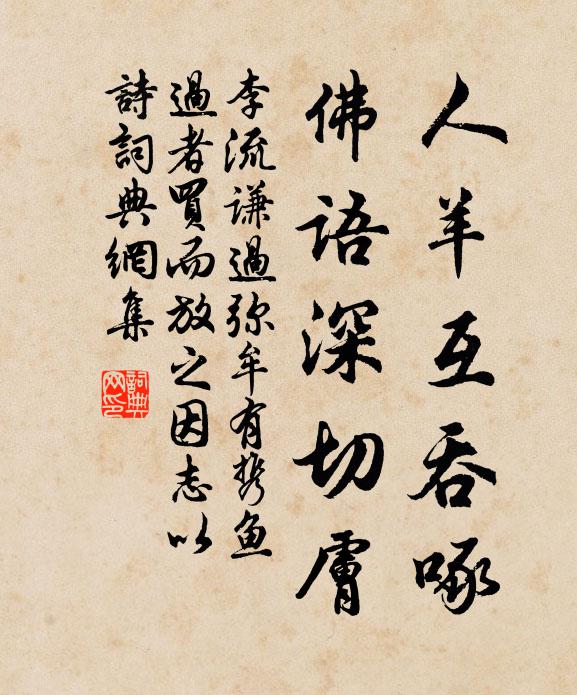 人羊互吞啄
佛语深切膚
李流谦過弥牟有携魚
過者買而放之因志以
詩詞典網集
詞典網印